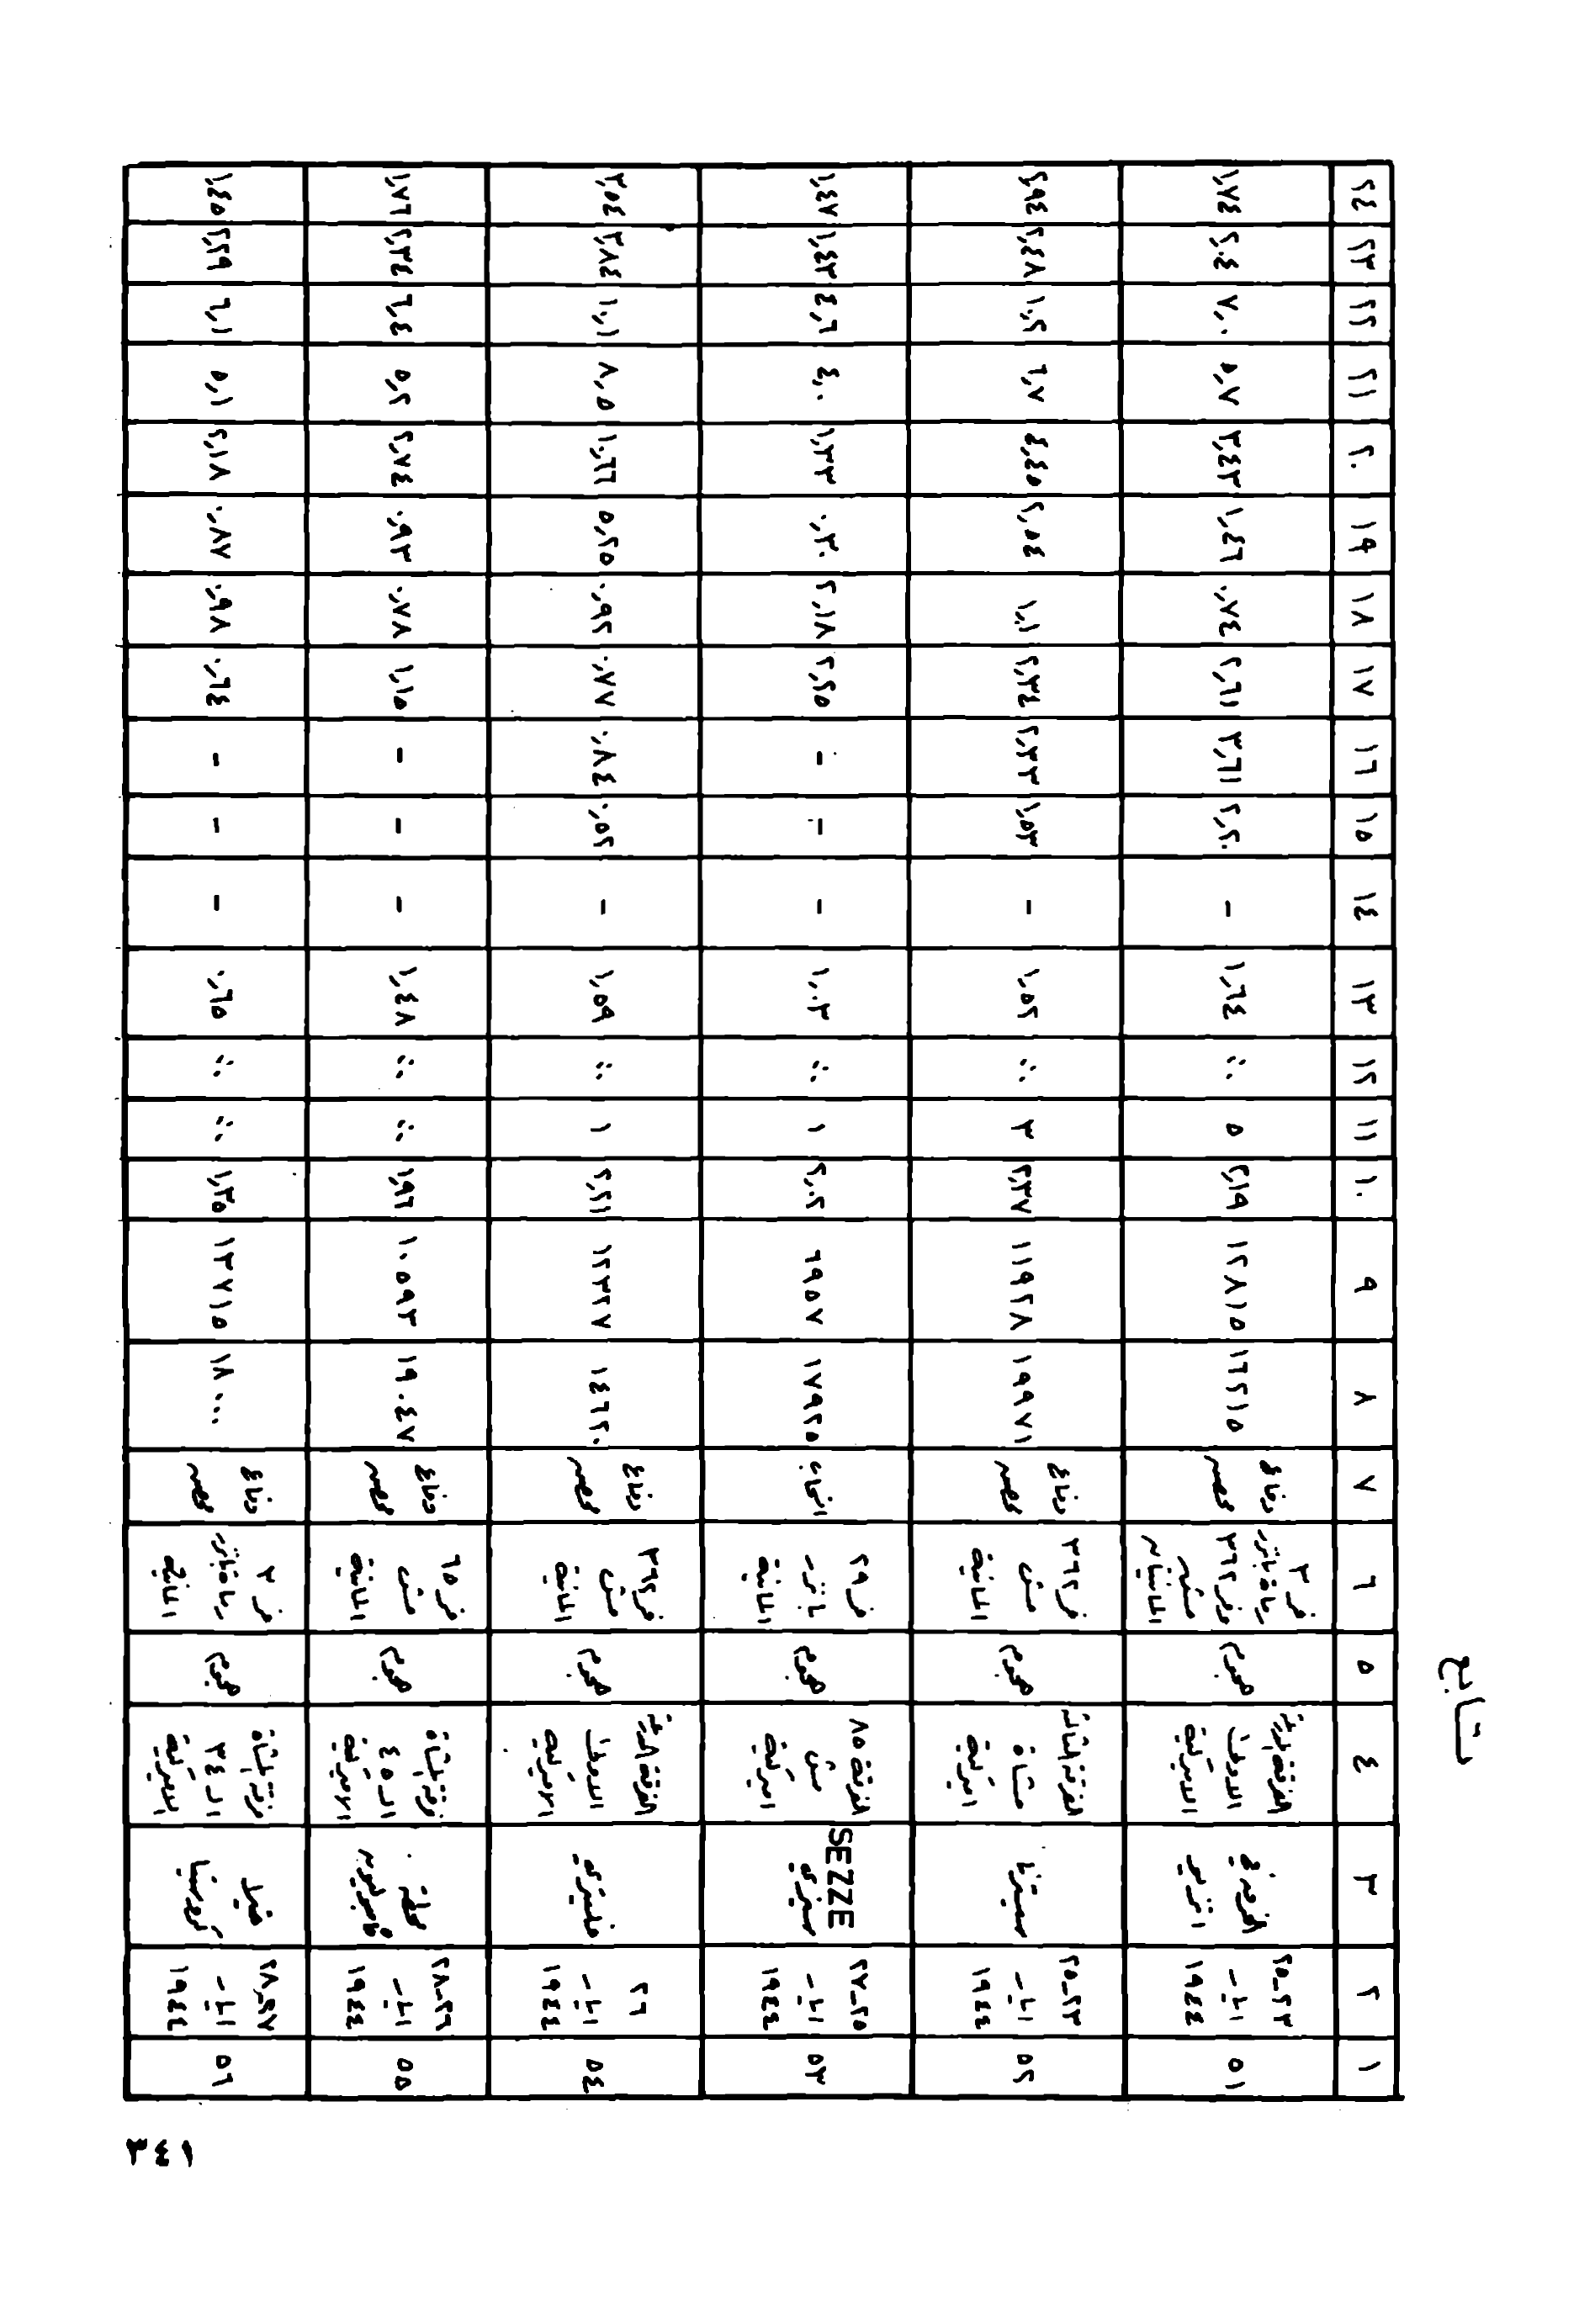 تابع
١ ٢ ٣ ٤ ٥ ٦ ٧ ٨ ٩ ١٠ ١١ ١٢ ١٣ ١٤ ١٥ ١٦ ١٧ ١٨ ١٩ ٢٠ ٢١ ٢٢ ٢٣ ٢٤
٥١ ٢٣-٢٥ ايار - ١٩٤٤ الخروج في انزيو الفرقة المدرعة الاولى الامريكية هجوم فر ٣ رماة بانزر وفر ٣٦٢ مش المانيتان دفاع محصن ١٦٢١٥ ١٢٨١٥ ٢,١٩ ٥ ∴ ١,٦٤ - ٢,٢٠ ٣,٦١ ٢,٦١ ٠,٧٤ ١,٤٦ ٣,٤٣ ٥,٧ ٧,٠ ٢,٠٤ ١,٧٤
٥٢ ٢٣-٢٥ ايار - ١٩٤٤ سيترنا الفرقة الثالثة مشاة امريكية هجوم فر ٣٦٢ مش المانية دفاع محصن ١٩٩٧١ ١١٩٢٨ ٢,٣٧ ٣ ∴ ١,٥٢ - ١,٥٣ ٢,٣٣ ٢,٣٤ ١,٠١ ٢,٥٤ ٤,٤٥ ٦,٧ ١٠,٢ ٢,٤٨ ٢,٩٤
٥٣ ٢٥-٢٧ ايار - ١٩٤٤ SEZZE سيزي الفرقة ٨٥ مش امريكية هجوم فر ٢٩ بانزر المانية اعاقة ١٧٩٢٥ ٦٩٥٧ ٢,٠٢ ١ ∴ ١,٠٣ - - - ٢,٢٥ ٢,١٨ ٠,٣٠ ١,٣٣ ٤,٠ ٤,٦ ١,٤٣ ١,٤٧
٥٤ ٢٦ ايار - ١٩٤٤ فليتري الفرقة المدرعة الاولى الامريكية هجوم فر ٣٦٢ مش المانية دفاع محصن ١٤٦٢٠ ١٢٣٢٧ ٢,٢١ ١ ∴ ١,٥٩ - ٠,٥٢ ٠,٨٤ ٠,٧٧ ٠,٩٢ ٥,٢٥ ١٠,٦٦ ٨,٥ ١٠,١ ٣,٨٤ ٣,٥٤
٥٥ ٢٦-٢٨ ايار - ١٩٤٤ محطة فرقة المشاة الـ ٤٥ الامريكية هجوم فر ٦٥ مش المانية دفاع محصن ١٩٠٤٧ ١٠٥٩٣ ١,٩٦ ∴ ∴ ١,٤٨ - - - ١,١٥ ٠,٧٨ ٠,٩٣ ٢,٧٤ ٥,٢ ٦,٤ ٢,٣٤ ١,٧٦
٥٦ ٢٧-٢٨ ايار - ١٩٤٤ فرقة المشاة الـ ٣٤ الامريكية هجوم فر ٣ رماة بانزر المانية دفاع محصن ١٨٠٠٠ ١٣٧١٥ ١,٣٥ ∴ ∴ ٠,٦٥ - - - ٠,٦٤ ٠,٩٨ ٠,٨٧ ٢,١٨ ٥,١ ٦,١ ٢,٢٩ ١,٤٥
٣٤١